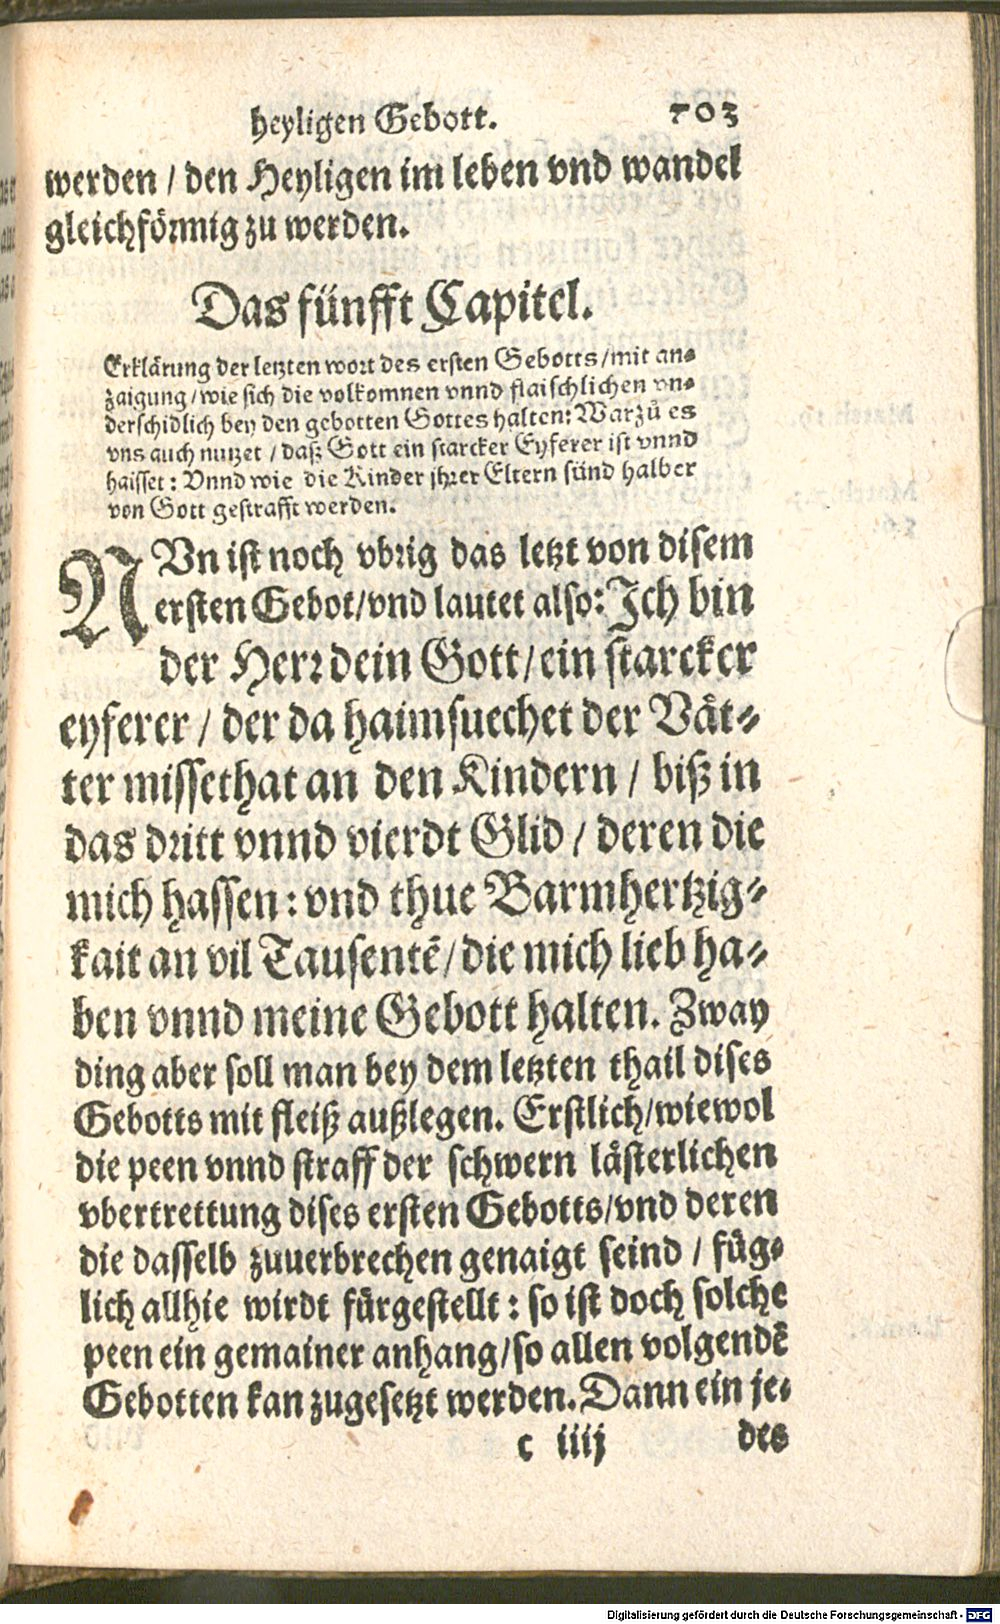 heyligen Gebott. 703
werden / den Heyligen im leben vnd wandel
gleichförmig zu werden.
Das fünfft Capitel.
Erklärung der letzten wort des ersten Gebotts / mit an-
zaigung / wie sich die volkomnen vnnd flaischlichen vn-
derschidlich bey den gebotten Gottes halten: Warzů es
vns auch nutzet / daß Gott ein starcker Eyferer ist vnnd
haisset: Vnnd wie die Kinder jhrer Eltern sünd halber
von Gott gestrafft werden.
NVn ist noch vbrig das letzt von disem
ersten Gebot / vnd lautet also: Ich bin
der Herr dein Gott / ein starcker
eyferer / der da haimsuechet der Vät-
ter missethat an den Kindern / biß in
das dritt vnnd vierdt Glid / deren die
mich hassen: vnd thue Barmhertzig-
kait an vil Tausentē / die mich lieb ha-
ben vnnd meine Gebott halten. Zway
ding aber soll man bey dem letzten thail dises
Gebotts mit fleiß außlegen. Erstlich / wiewol
die peen vnnd straff der schwern lästerlichen
vbertrettung dises ersten Gebotts / vnd deren
die dasselb zuuerbrechen genaigt seind / füg-
lich allhie wirdt fürgestellt: so ist doch solche
peen ein gemainer anhang / so allen volgendē
Gebotten kan zugesetzt werden. Dann ein je-
c iiij des
Digitalisierung gefördert durch die Deutsche Forschungsgemeinschaft - DFG